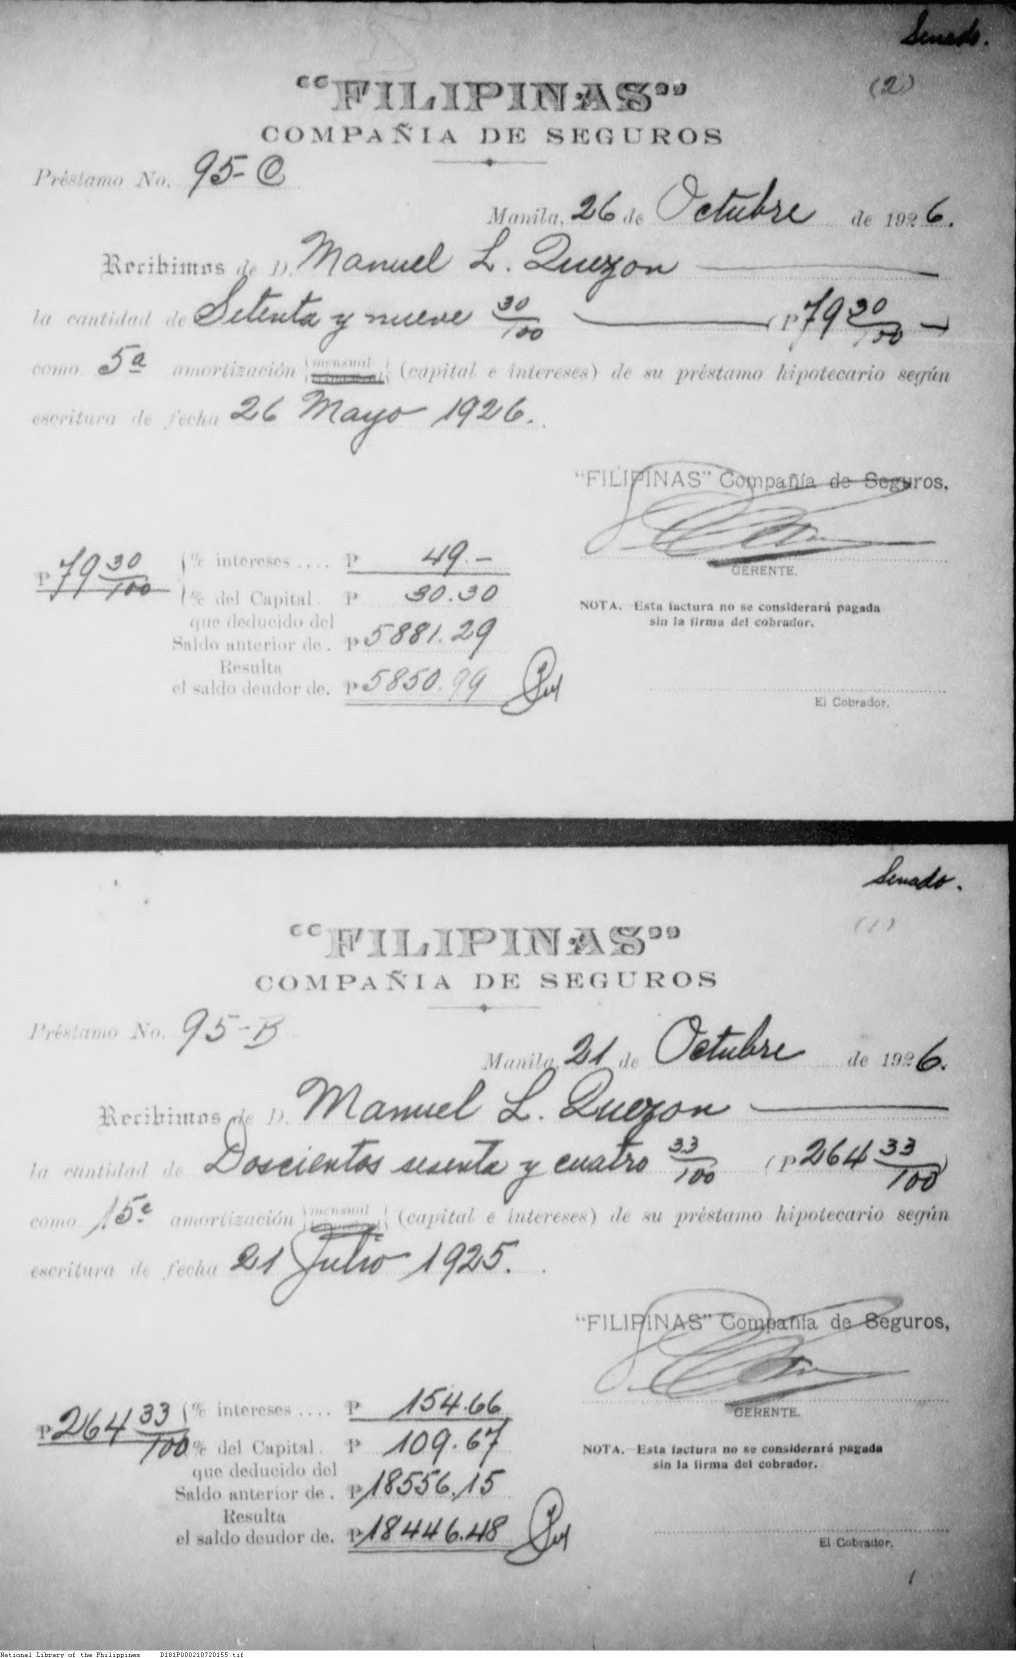 Senado.
(2)
"FILIPINAS"
COMPAÑIA DE SEGUROS
Préstamo No. 95-C
Manila, 26 de Octubre de 1926.
Recibimos de D. Manuel L. Quezon
la cantidad de Setenta y nueve 30/100 (P 79 30/100)
como 5ª amortización (mensual) (capital e intereses) de su préstamo hipotecario según
escritura de fecha 26 Mayo 1926.
"FILIPINAS" Compañía de Seguros,
GERENTE.
P 79 30/100 (% intereses .... P 49.-
(% del Capital. P 30.30
NOTA.-Esta factura no se considerará pagada
sin la firma del cobrador.
que deducido del
Saldo anterior de . P 5881.29
Resulta
el saldo deudor de. P 5850.99
El Cobrador.
Senado.
(1)
"FILIPINAS"
COMPAÑIA DE SEGUROS
Préstamo No. 95-B
Manila, 21 de Octubre de 1926.
Recibimos de D. Manuel L. Quezon
la cantidad de Doscientos sesenta y cuatro 33/100 (P 264 33/100)
como 15ª amortización (mensual) (capital e intereses) de su préstamo hipotecario según
escritura de fecha 21 Julio 1925.
"FILIPINAS" Compañía de Seguros,
GERENTE.
P 264 33/100 (% intereses .... P 154.66
% del Capital. P 109.67
NOTA.-Esta factura no se considerará pagada
sin la firma del cobrador.
que deducido del
Saldo anterior de . P 18556.15
Resulta
el saldo deudor de. P 18446.48
El Cobrador.
National Library of the Philippines D181P000210720155.tif